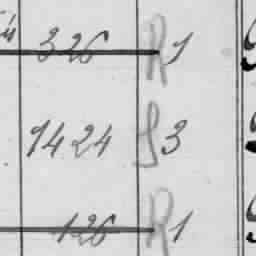 326 R1
1424 S3
126 R1